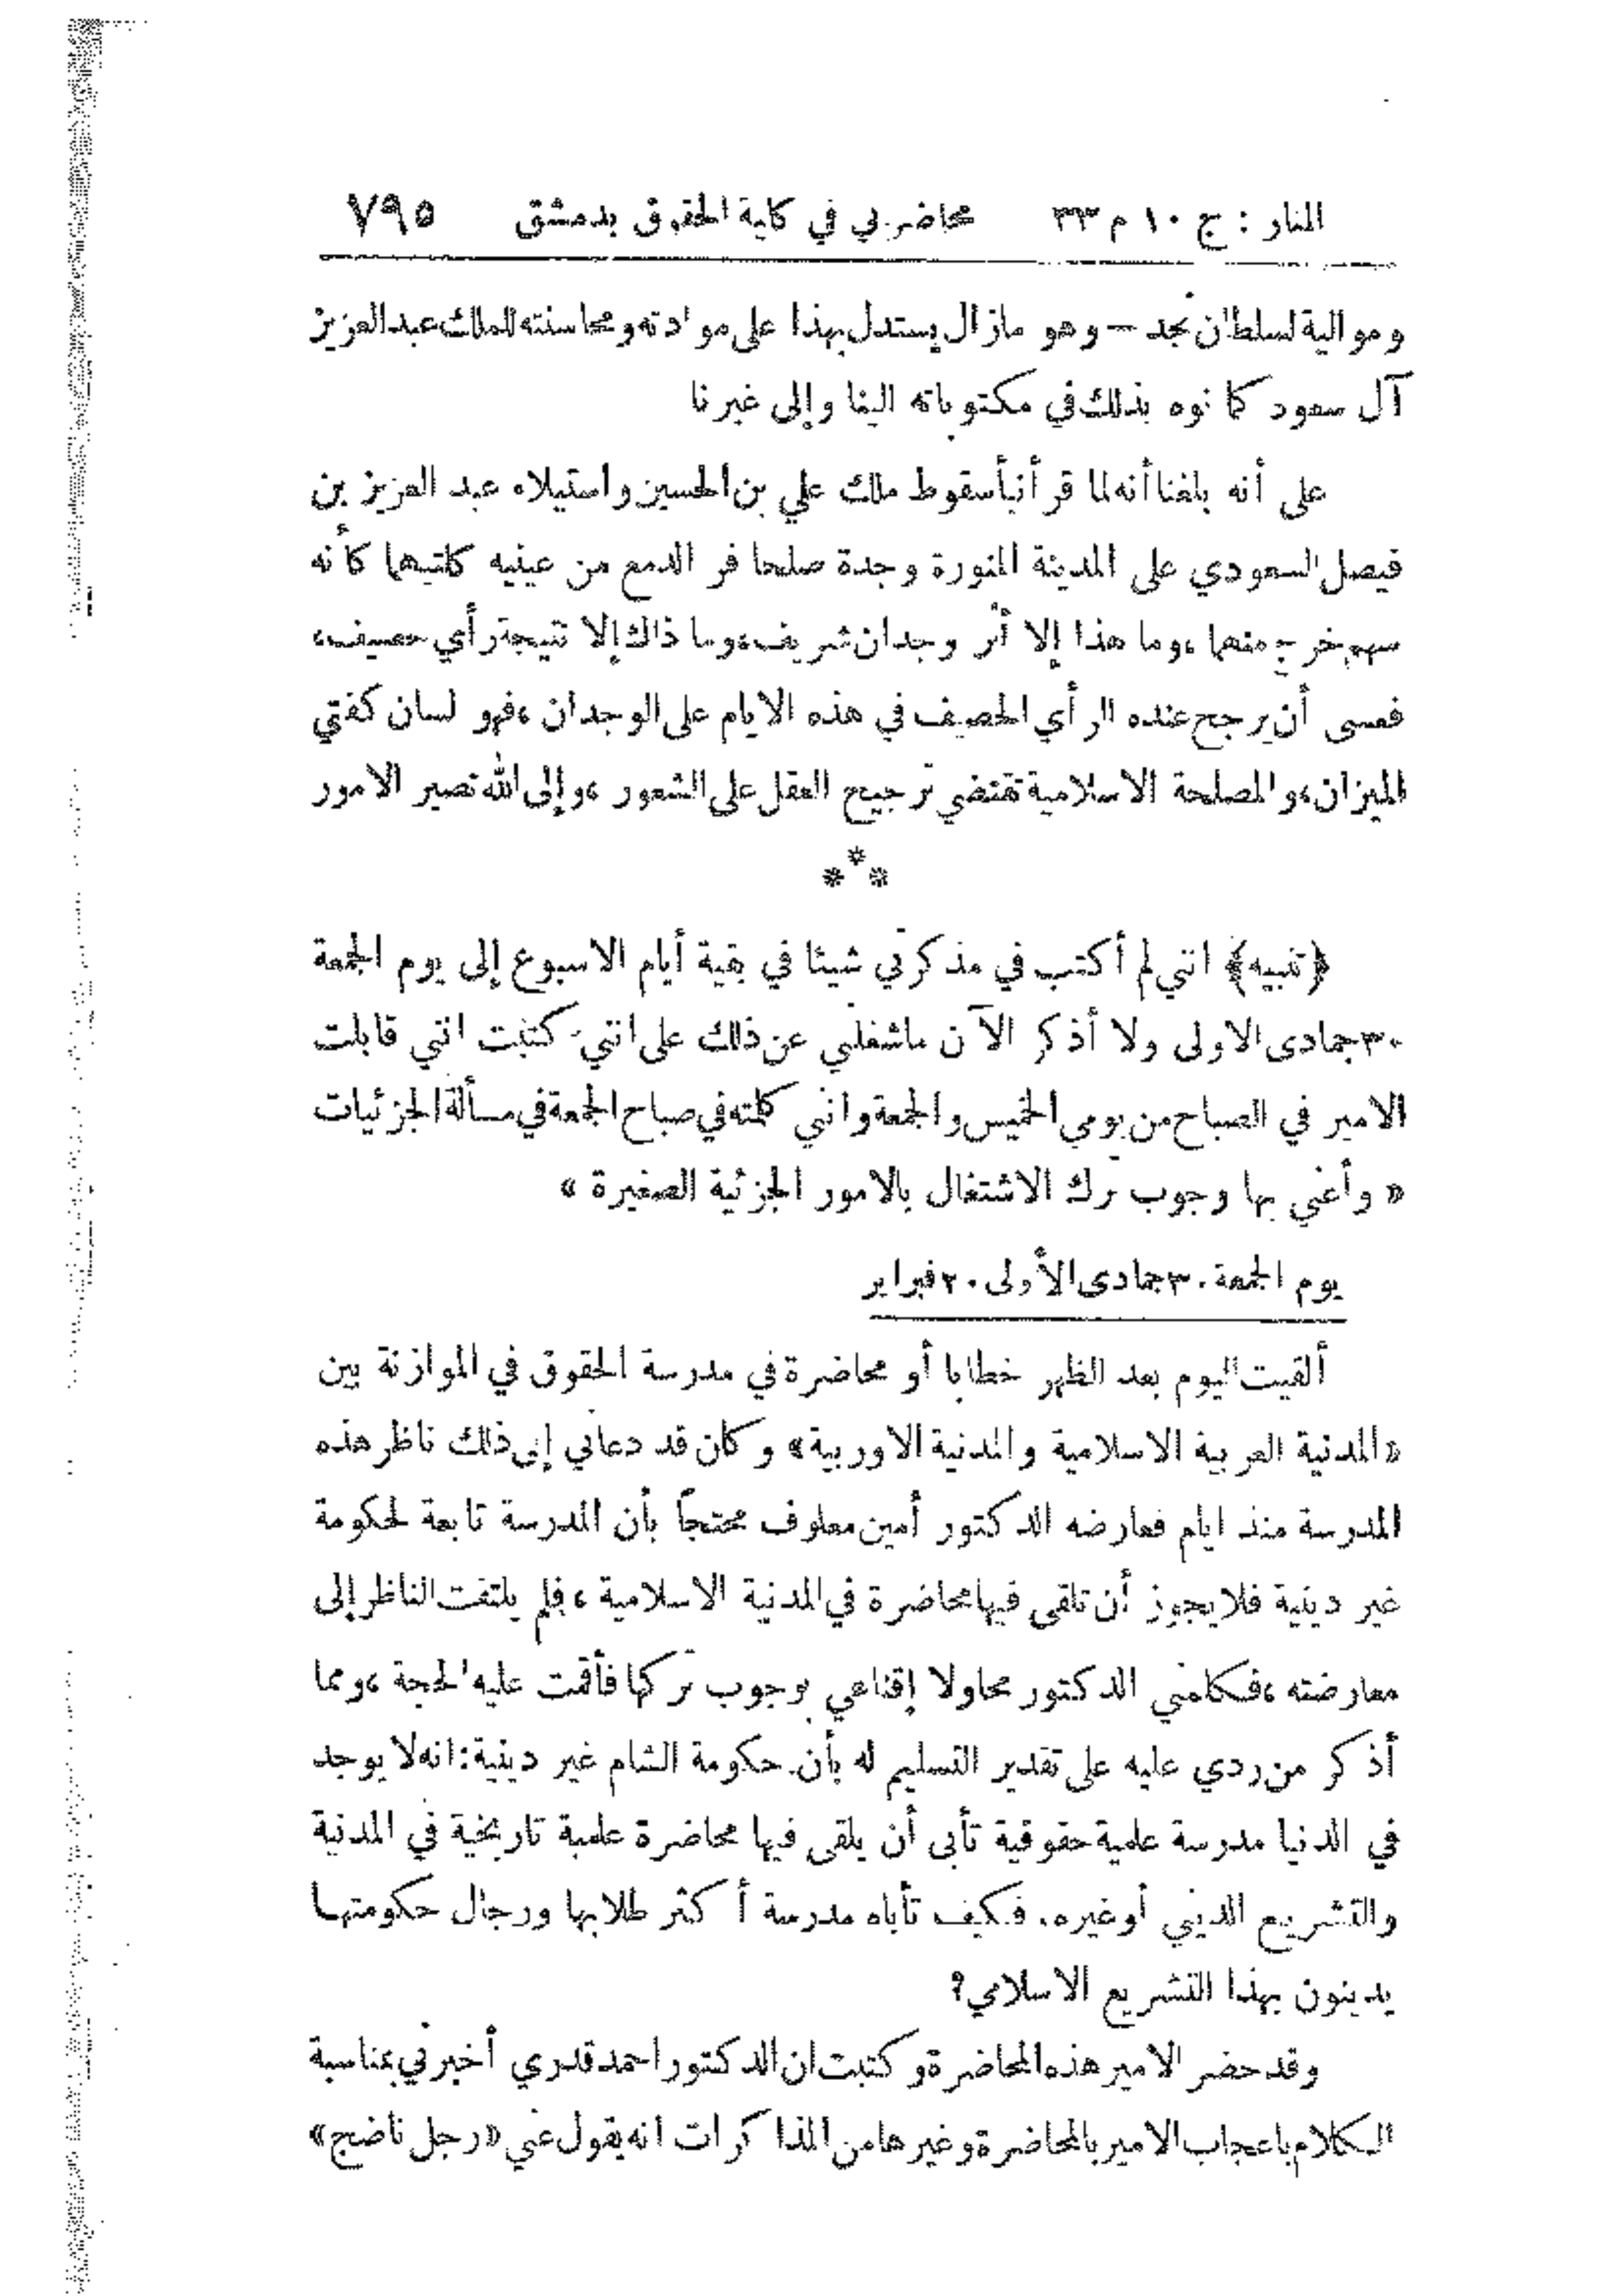 المنار : ج ١٠ م ٣٣ محاضرتي في كلية الحقوق بدمشق ٧٩٥
وموالية لسلطان نجد — وهو مازال يستدل بهذا على موادته ومحاسنته للملك عبد العزيز
آل سعود كما نوه بذلك في مكتوباته الينا وإلى غيرنا
على أنه بلغنا أنه لما قرأ نبأ سقوط ملك علي بن الحسين واستيلاء عبد العزيز بن
فيصل السعودي على المدينة المنورة وجدة صلحا فر الدمع من عينيه كلتيهما كأنه
سهم خرج منهما ، وما هذا إلا أثر وجدان شريف، وما ذاك إلا نتيجة رأي حصيف،
فعسى أن يرجح عنده الرأي الحصيف في هذه الايام على الوجدان ، فهو لسان كفتي
الميزان، والمصلحة الاسلامية تقتضي ترجيح العقل على الشعور ، وإلى الله تصير الامور
***
﴿تنبيه﴾ انني لم أكتب في مذكرتي شيئا في بقية أيام الاسبوع إلى يوم الجمعة
٣٠ جمادى الاولى ولا أذكر الآن ماشغلني عن ذلك على انني كتبت انني قابلت
الامير في الصباح من يومي الخميس والجمعة وانني كلمته في صباح الجمعة في مسألة الجزئيات
« وأعني بها وجوب ترك الاشتغال بالامور الجزئية الصغيرة »
يوم الجمعة ٣٠ جمادى الأولى ٢٠ فبراير
ألقيت اليوم بعد الظهر خطابا أو محاضرة في مدرسة الحقوق في الموازنة بين
«المدنية العربية الاسلامية والمدنية الاوربية» وكان قد دعاني إلى ذلك ناظر هذه
المدرسة منذ ايام فعارضه الدكتور أمين معلوف محتجاً بأن المدرسة تابعة لحكومة
غير دينية فلا يجوز أن تلقى فيها محاضرة في المدنية الاسلامية ، فلم يلتفت الناظر إلى
معارضته ، فكلمني الدكتور محاولا إقناعي بوجوب تركها فأقمت عليه الحجة ، ومما
أذكر من ردي عليه على تقدير التسليم له بأن حكومة الشام غير دينية: انه لا يوجد
في الدنيا مدرسة علمية حقوقية تأبى أن يلقى فيها محاضرة علمية تاريخية في المدنية
والتشريع الديني أو غيره. فكيف تأباه مدرسة أكثر طلابها ورجال حكومتها
يدينون بهذا التشريع الاسلامي؟
وقد حضر الامير هذه المحاضرة وكتبت ان الدكتور احمد قدري أخبرني بمناسبة
الكلام باعجاب الامير بالمحاضرة وغيرها من المذاكرات انه يقول عني «رجل ناضج»